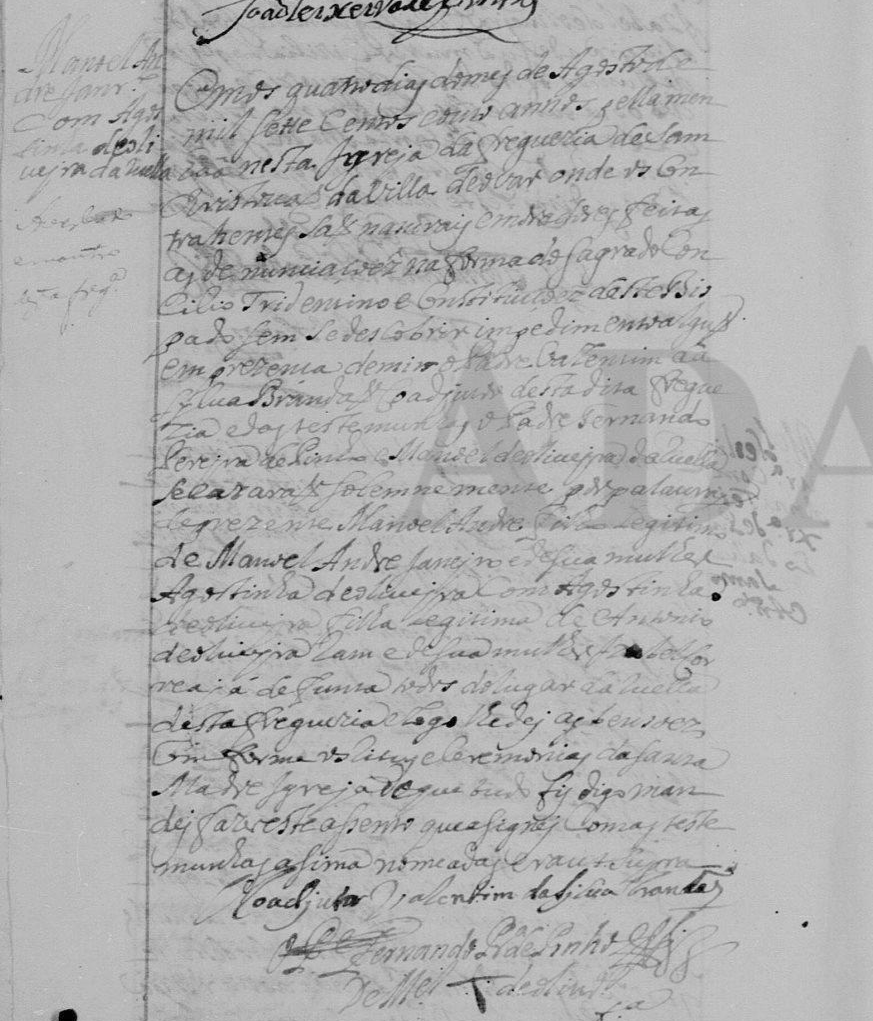 Manoel An
dre Janr.º
Com Agos
tinha deoli
vejra da ruella
Aos quatro dias do mes de Agosto de
mil sette Centos e outo annos pella men
cão nesta Igreja da freguezia de Sam
Christovaõ da Villa de ovar onde os Con
trahentes saõ naturais e moradores feitas
as denunciacoeñs na forma do sagrado Con
cilio Tridentino e Constituicoeñs deste Bis
pado sem se descobrir impedimento algu
em prezenca de mim o Padre Valentim da
Sylva Brandaõ Coadjutor desta dita fregue
zia e das testemunhas o Padre Fernando
Pereyra de Pinho e Manoel de olivejra da ruella
se cazaraõ solemnemente por palavras
de prezente Manoel Andre filho legitimo
de Manoel Andre Janejro e de sua mulher
Agostinha de olivejra Com Agostinha
de olivejra filha legitima de Antonio
de olivejra Lam e de sua mulher Izabel Cor
rea já defunta todos do lugar da ruella
desta freguezia e logo lhe dej as bencoeñs
Conforme os ritos e Ceremonias da Santa
Madre Igreja de que tudo fis digo man
dej fazer este assento que asignej Com as teste
munhas asima nomeadas era ut supra
O Coadjutor Valentim da Sylva Brandaõ
O P.e Fernando Pr.ª de Pinho
De M.el + de oliv.ra
ADA